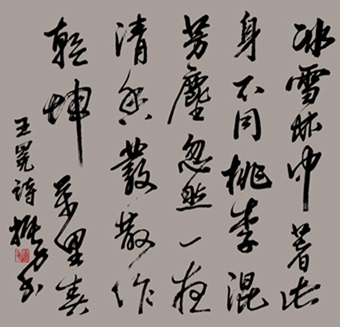 冰雪林中著此
身不同桃李混
芳塵忽然一夜
清香發散作
乾坤萬里春
王冕詩